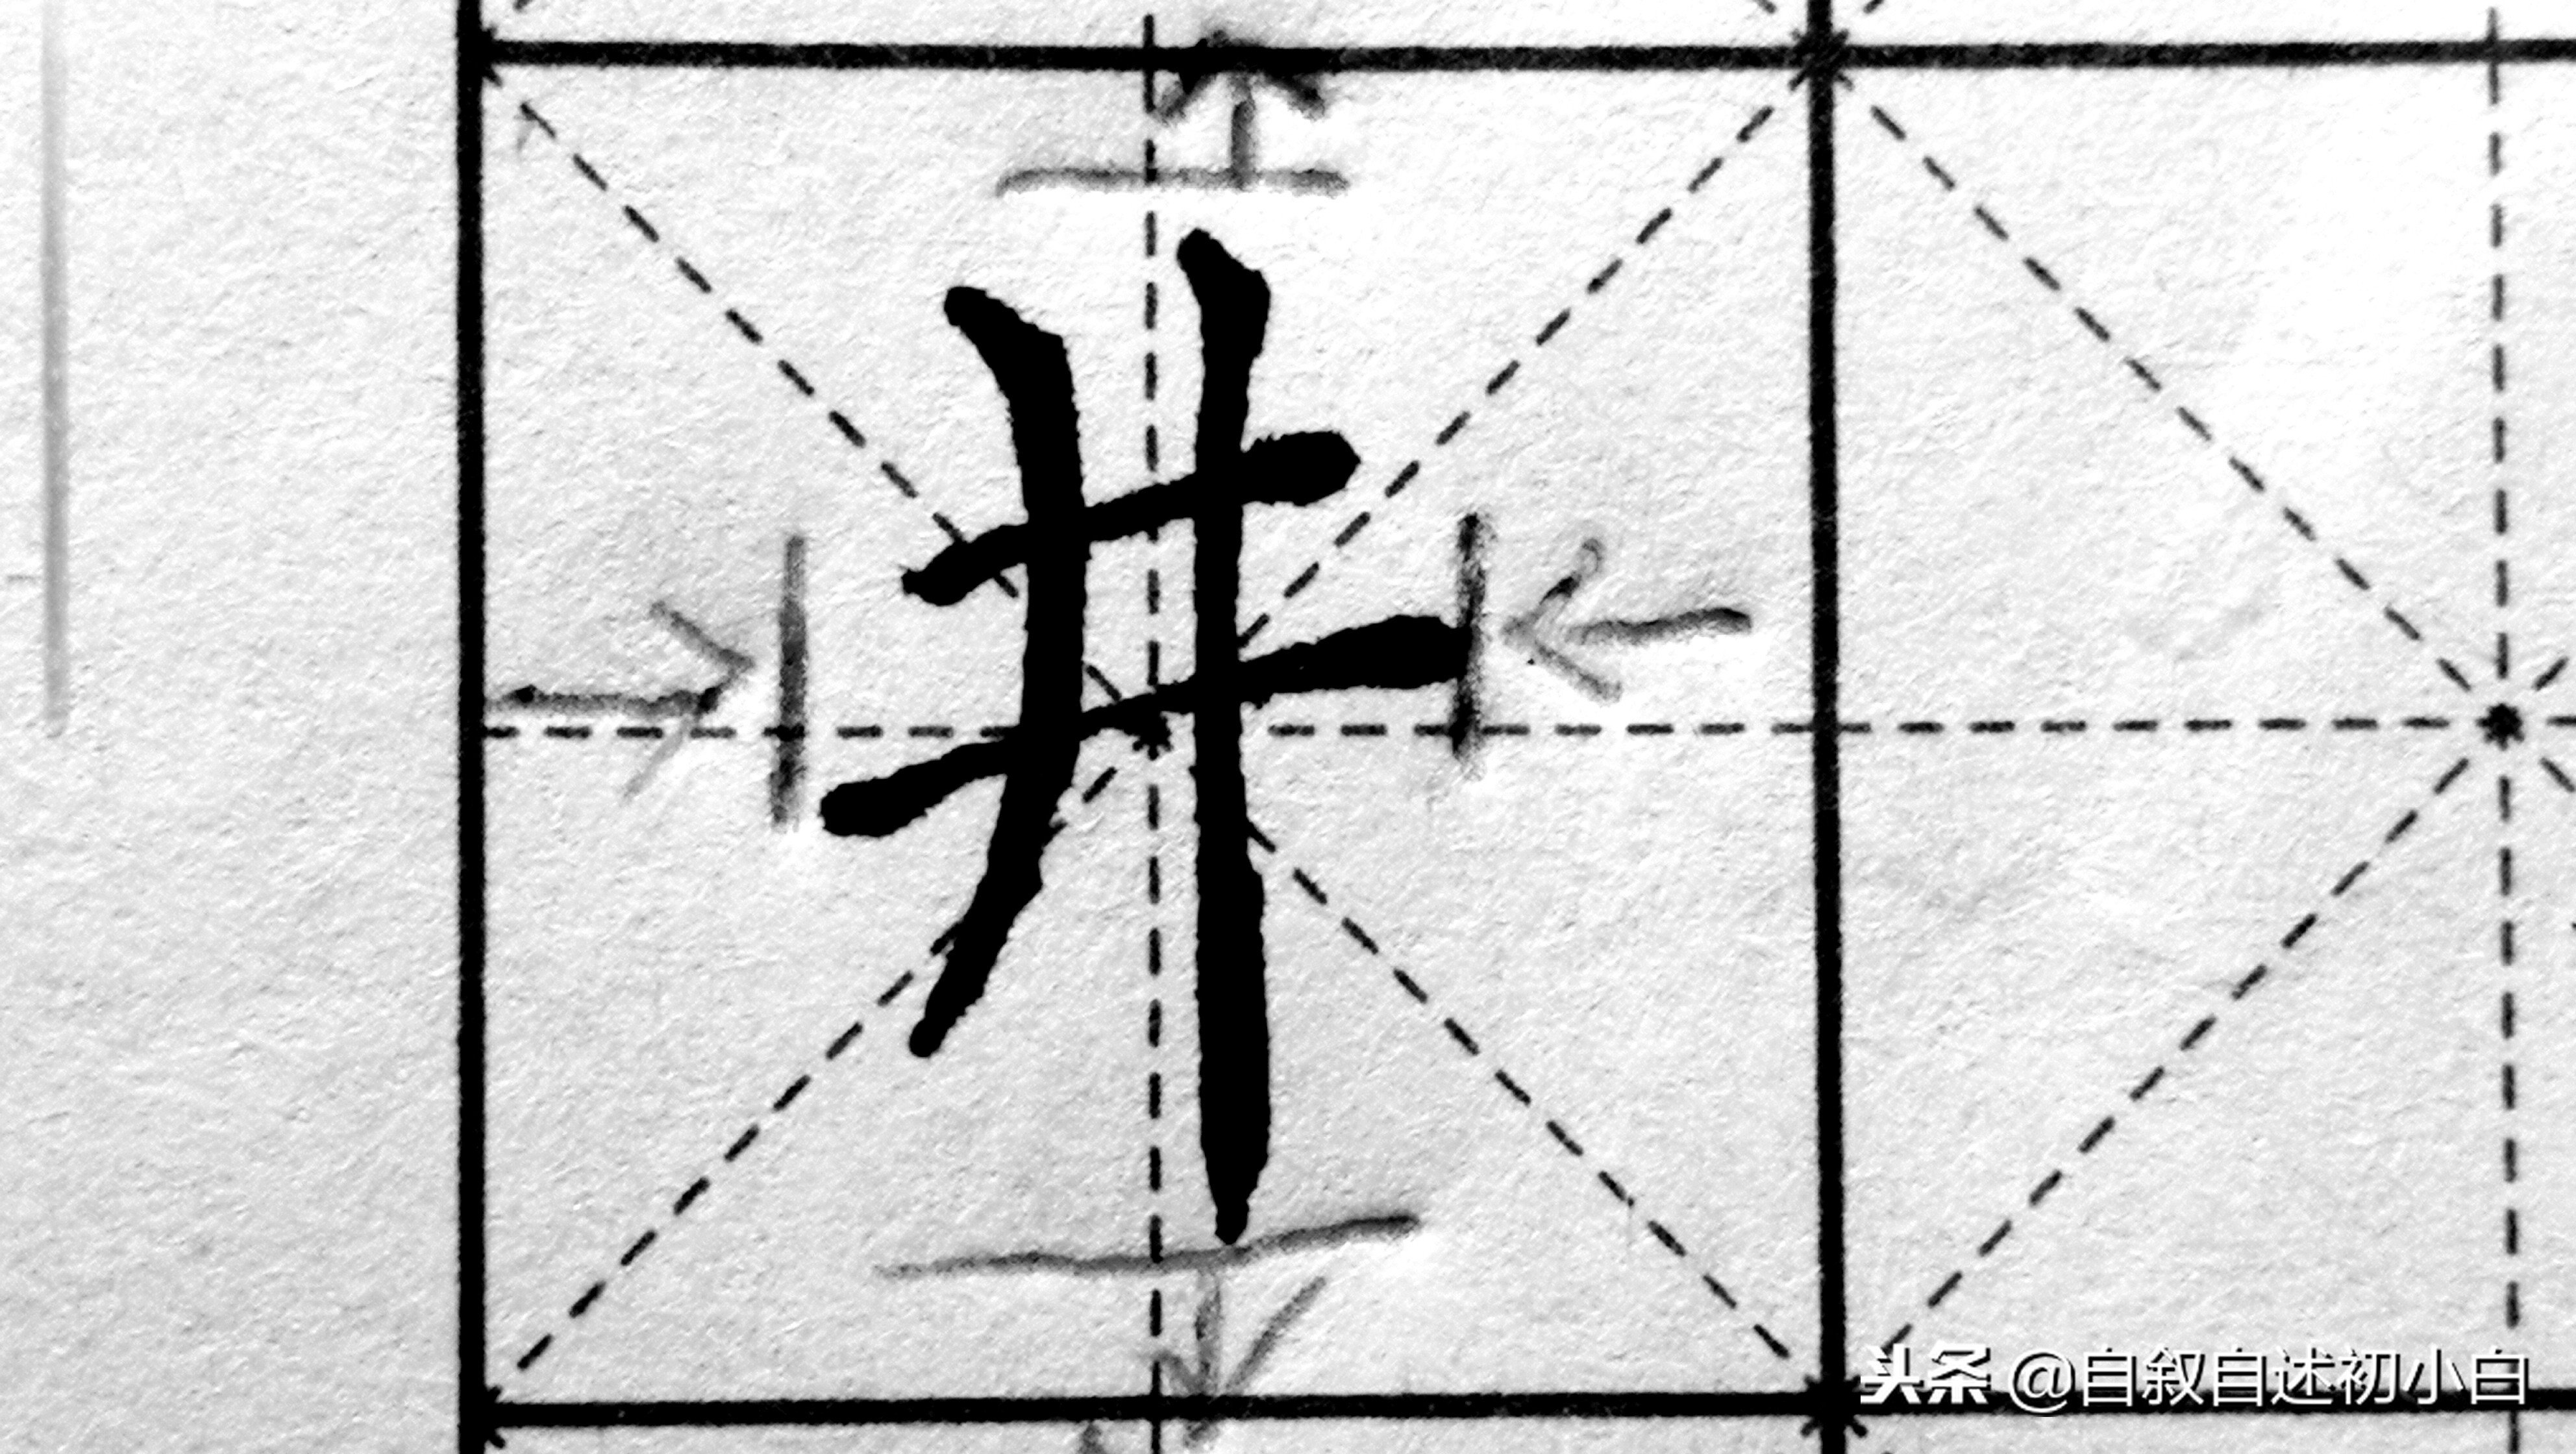 井
头条 @自叙自述初小白